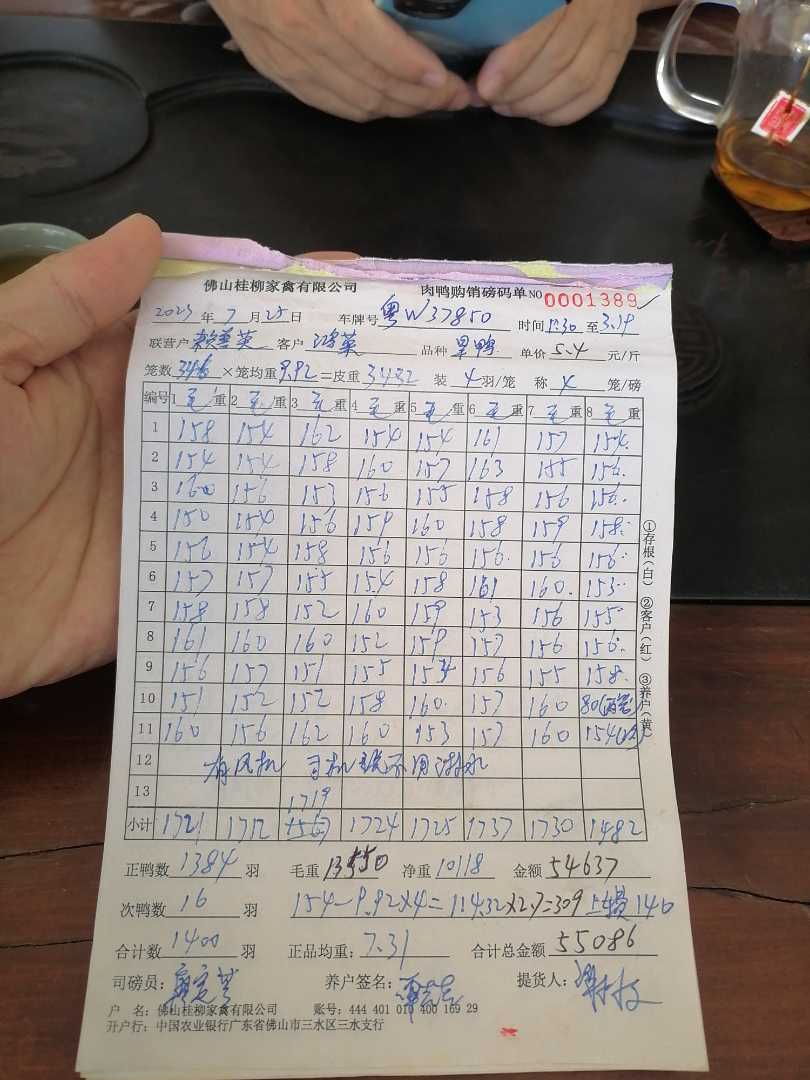 佛山桂柳家禽有限公司 肉鸭购销磅码单 NO 0001389
2023 年 7 月 25 日 车牌号 粤W37850 时间 1:30 至 3:19
联营户 客户 鸿策 品种 单价 5.4 元/斤
笼数 346 ×笼均重 9.92 =皮重 3432 装 4 羽/笼 称 4 笼/磅
编号 1 毛 重 2 毛 重 3 毛 重 4 毛 重 5 毛 重 6 毛 重 7 毛 重 8 毛 重
1 158 154 162 154 154 161 157 154
2 154 154 158 160 157 163 155 156
3 160 156 153 156 155 158 156 156
4 150 154 156 159 160 158 159 158
5 156 154 158 156 156 156 156 156
6 157 157 155 154 158 161 160 153
7 158 158 152 160 159 153 156 155
8 161 160 160 152 159 157 156 156
9 156 157 151 155 154 156 155 158
10 151 152 152 158 160 157 160 80
11 160 156 162 160 153 157 160 154
12 有风机 司机说不用淋水
13 1719
小计 1721 1712 1724 1725 1737 1730 1482
正鸭数 1384 羽 毛重 13550 净重 10118 金额 54637
次鸭数 16 羽 154-9.92×4=114.32×2.7=309 140
合计数 1400 羽 正品均重: 7.31 合计总金额 55086
司磅员: 养户签名: 提货人:
户 名: 佛山桂柳家禽有限公司 账号: 444 401 010 400 169 29
开户行: 中国农业银行广东省佛山市三水区三水支行
①存根(白) ②客户(红) ③养户(黄)